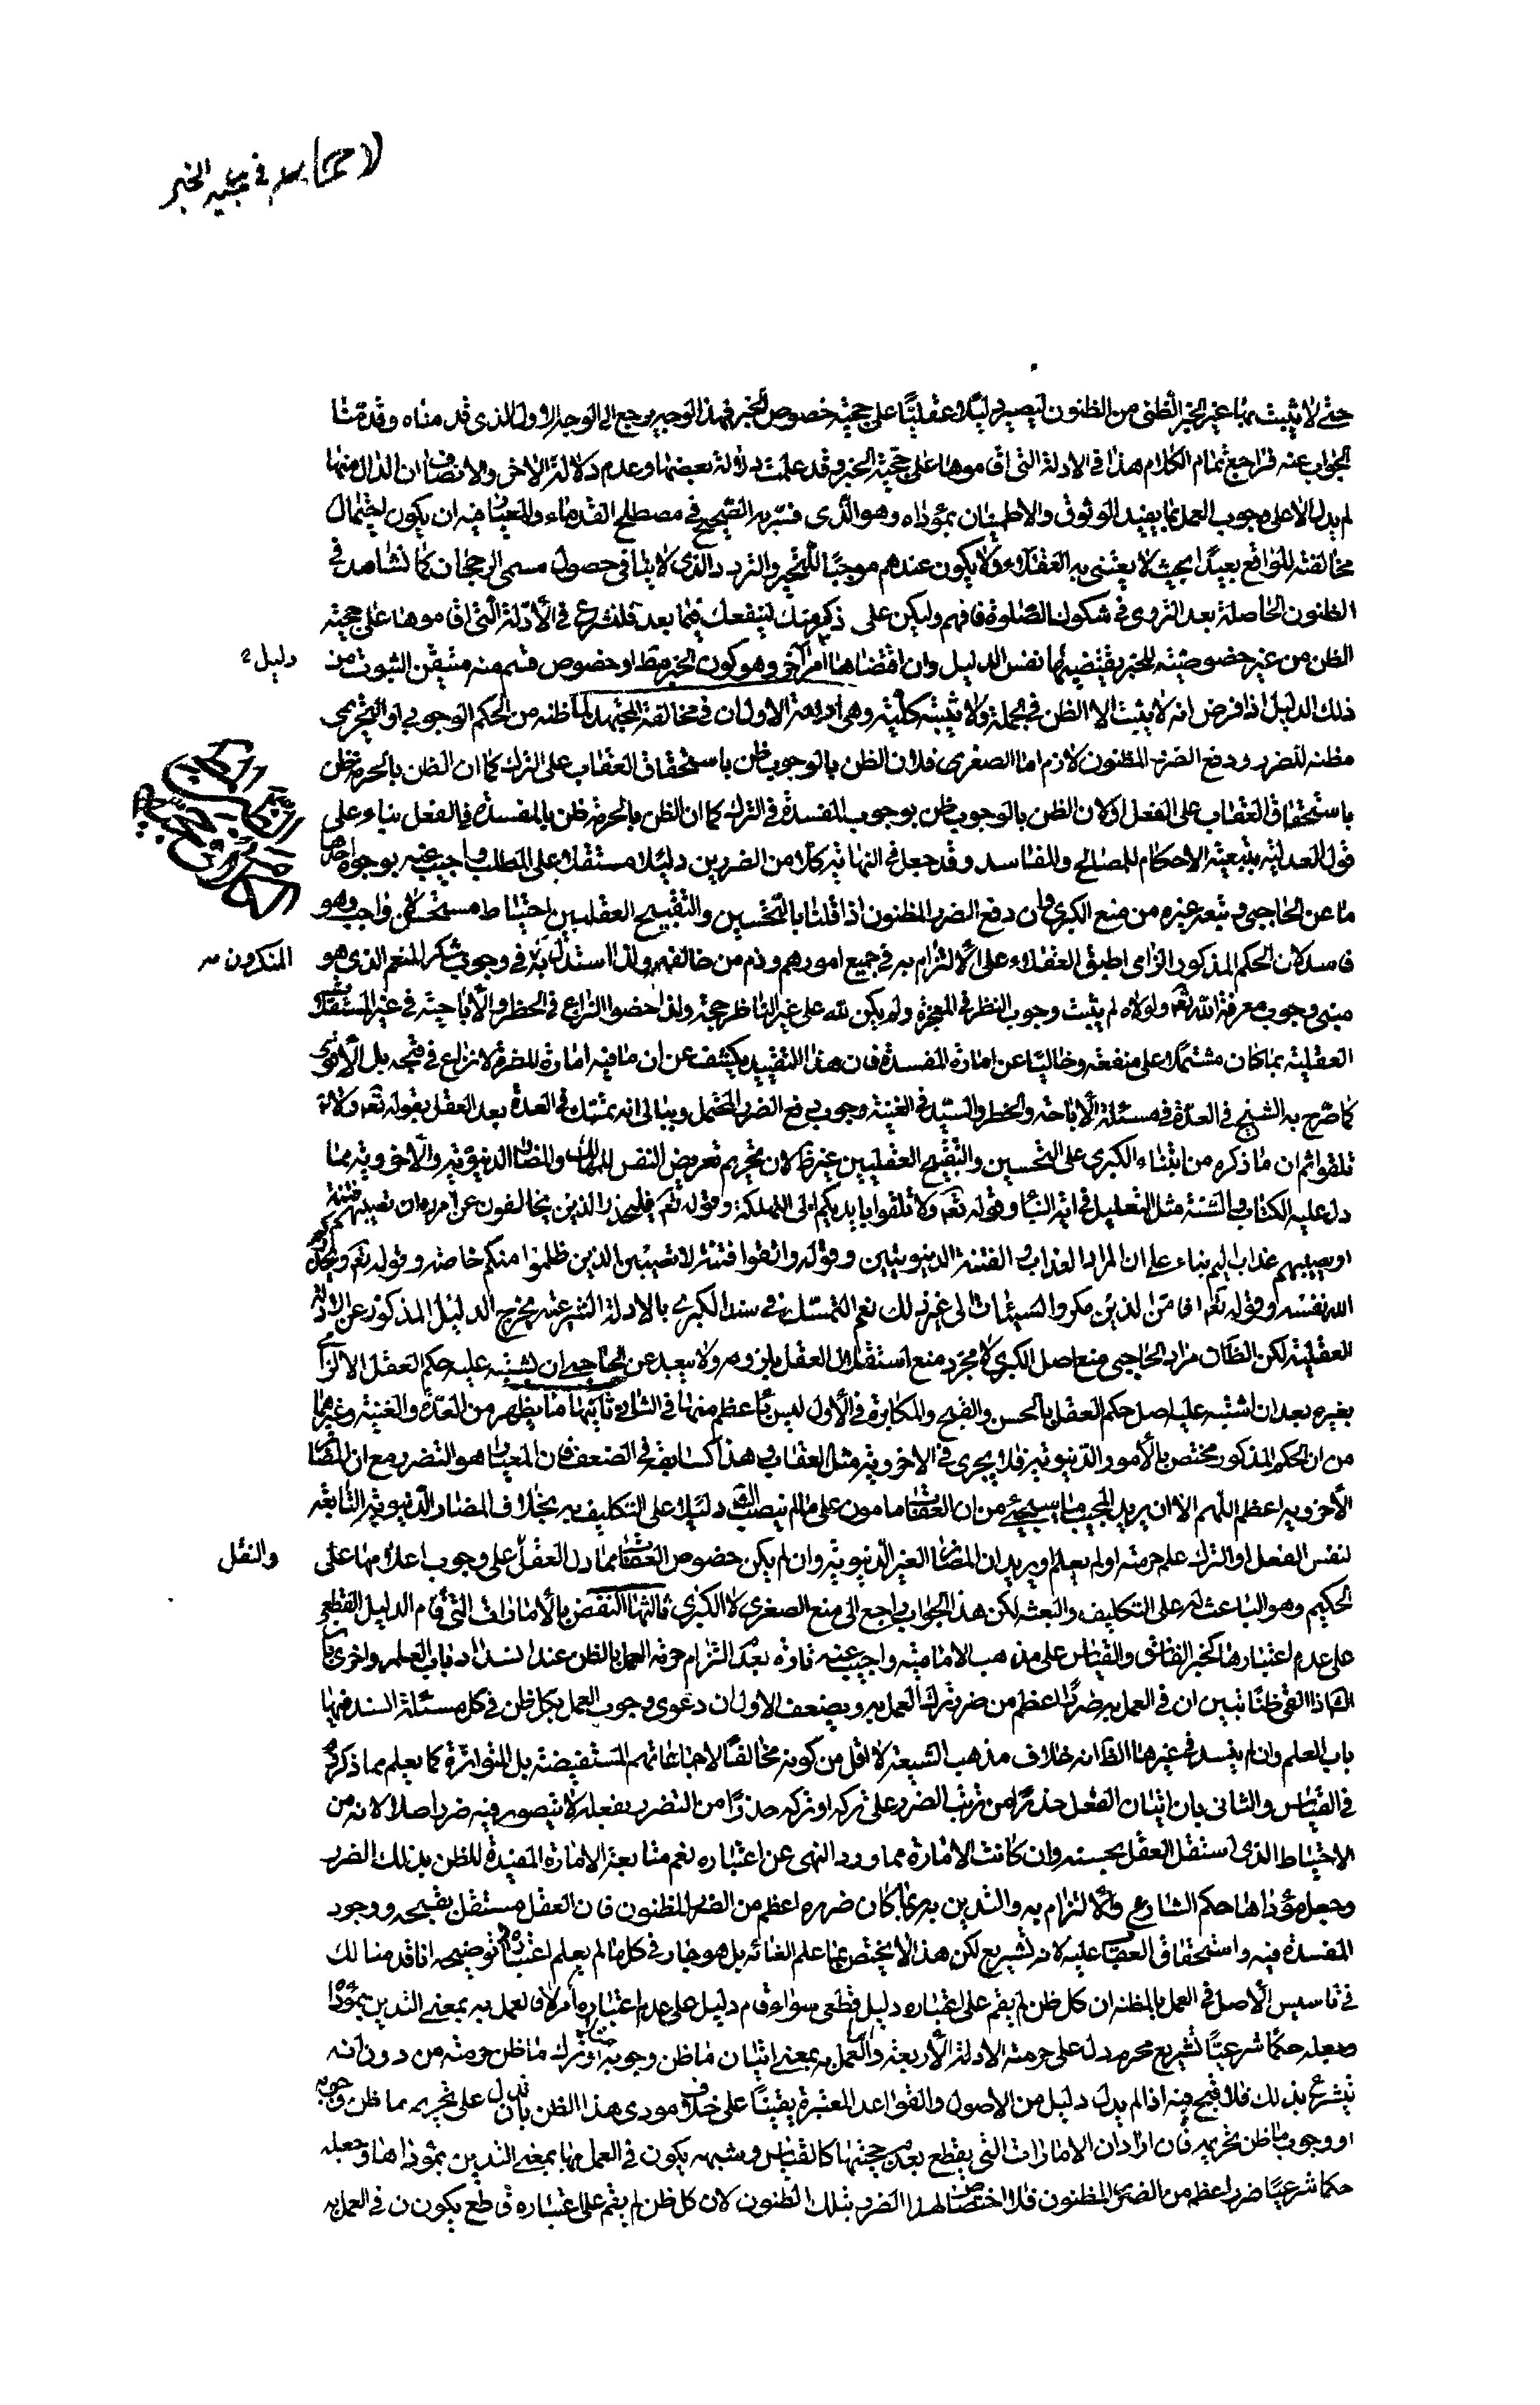 في حجية الخبر
حتى لا يثبت بها غير الخبر الظني من الظنون ليصير دليلا عقليا على حجية خصوص الخبر فهذا الوجه يرجع الى الوجه الاول الذي قدمناه وقدمنا
الجواب عنه فراجع تمام الكلام هذا في الادلة التي اقاموها على حجية الخبر وقد علمت دلالة بعضها وعدم دلالة الاخر والانصاف ان الدال منها
لم يدل الا على وجوب العمل بما يفيد الوثوق والاطمينان بمؤداه وهو الذي فسر به الصحيح في مصطلح القدماء والمعيار فيه ان يكون احتمال
مخالفته للواقع بعيدا بحيث لا يعتني به العقلاء ولا يكون عندهم موجبا للتحير والتردد الذي لا ينافي حصول مسمى الرجحان كما نشاهد في
الظنون الحاصلة بعد التروي في شكوك الصلوة فافهم وليكن على ذكر منك لينفعك فيما بعد فلنشرع في الأدلة التي اقاموها على حجية
الظن من غير خصوصية للخبر يقتضيها نفس الدليل وان اقتضاها امر آخر وهو كون الخبر مط او خصوص قسم منه متيقن الثبوت من
دليل
ذلك الدليل اذا فرض انه لا يثبت الا الظن في الجملة ولا يثبته كلية وهي اربعة الاول ان في مخالفة المجتهد لما ظنه من الحكم الوجوبي او التحريمي
مظنة للضرر ودفع الضرر المظنون لازم اما الصغرى فلان الظن بالوجوب ظن باستحقاق العقاب على الترك كما ان الظن بالحرمة ظن
باستحقاق العقاب على الفعل او لان الظن بالوجوب ظن بوجوب المفسدة في الترك كما ان الظن بالحرمة ظن بالمفسدة في الفعل بناء على
قول العدلية بتبعية الاحكام للمصالح والمفاسد وقد جعل في النهاية كلا من الضررين دليلا مستقلا على المطلب واجيب عنه بوجوه احدها
ما عن الحاجبي وتبعه غيره من منع الكبرى وان دفع الضرر المظنون اذا قلنا بالتحسين والتقبيح العقليين احتياط مستحسن لا واجب وهو
فاسد لان الحكم المذكور الزامي اطبق العقلاء على الالتزام به في جميع امورهم وذم من خالفه ولذا استدل به في وجوب شكر المنعم الذي هو
المتكلمون
مبنى وجوب معرفة الله تعالى ولولاه لم يثبت وجوب النظر في المعجزة ولم يكن لله على غير الناظر حجة ولذا خصوا النزاع في الحظر والأباحة في غير المستقلات
العقلية بما كان مشتملا على منفعة وخاليا عن امارة المفسدة فان هذا التقييد يكشف عن ان ما فيه امارة المضرة لا نزاع في قبحه بل الأقوى
كما صرح به الشيخ في العدة في مسئلة الأباحة والحظر والسيد في الغنية وجوب دفع الضرر المحتمل وببالي انه تمسك في العدة بعد العقل بقوله تعالى ولا
تلقوا ثم ان ما ذكره من ابتناء الكبرى على التحسين والتقبيح العقليين غير ظ لان تحريم تعريض النفس للمهالك والمضار الدنيوية والأخروية مما
دل عليه الكتاب والسنة مثل التعليل في اية النبأ وقوله تع ولا تلقوا بايديكم الى التهلكة وقوله تع فليحذر الذين يخالفون عن امره ان تصيبهم فتنة
او يصيبهم عذاب اليم بناء على ان المراد العذاب والفتنة الدنيويتين وقوله واتقوا فتنة لا تصيبن الذين ظلموا منكم خاصة وقوله تع ويحذركم
الله نفسه وقوله تع افامن الذين مكروا السيئات الى غير ذلك نعم التمسك في سند الكبرى بالادلة الشرعية يخرج الدليل المذكور عن الادلة
العقلية لكن الظ ان مراد الحاجبي منع اصل الكبرى لا مجرد منع استقلال العقل بلزومه ولا يبعد عن الحاجبي ان يشتبه عليه حكم العقل الالزامي
بغيره بعد ان اشتبه عليه اصل حكم العقل بالحسن والقبح والمكابرة في الأول ليس باعظم منها في الثاني ثانيها ما يظهر من العدة والغنية وغيرهما
من ان الحكم المذكور مختص بالأمور الدنيوية فلا يجري في الاخروية مثل العقاب وهذا كسابقه في الضعف فان المعيار هو التضرر مع ان المضار
الأخروية اعظم اللهم الا ان يريد المجيب ما سيجئ من ان العقاب مامون على ما لم ينصب الشارع دليلا على التكليف به بخلاف المضار الدنيوية التابعة
لنفس الفعل او الترك علم حرمته او لم يعلم او يريد ان المضار الغير الدنيوية وان لم يكن خصوص العقاب مما دل العقل على وجوب اعلامها على
والنقل
الحكيم وهو الباعث له على التكليف والبعثة لكن هذا الجواب راجع الى منع الصغرى لا الكبرى ثالثها النقض بالأمارات التي قام الدليل القطعي
على عدم اعتبارها كخبر الفاسق والقياس على مذهب الامامية واجيب عنه تارة بعدم التزام حرمة العمل بالظن عند انسداد باب العلم واخرى بان
الشارع اذا الغى ظنا تبين ان في العمل به ضررا اعظم من ضرر ترك العمل به ويضعف الاول ان دعوى وجوب العمل بكل ظن في كل مسئلة انسد فيها
باب العلم وان لم ينسد في غيرها الظ انه خلاف مذهب الشيعة لا اقل من كونه مخالفا لاجماعاتهم المستفيضة بل المتواترة كما يعلم مما ذكروه
في القياس والثاني بان اتيان الفعل حذرا من ترتب الضرر على تركه او تركه حذرا من التضرر بفعله لا يتصور فيه ضرر اصلا لانه من
الاحتياط الذي استقل العقل بحسنه وان كانت الامارة مما ورد النهي عن اعتباره نعم متابعة الامارة المفيدة للظن بذلك الضرر
وجعل مؤداها حكم الشارع والالتزام به والتدين به ربما كان ضرره اعظم من الضرر المظنون فان العقل مستقل بقبحه ووجود
المفسدة فيه واستحقاق العقاب عليه لانه تشريع لكن هذا لا يختص بما علم الغائه بل هو جار في كل ما لم يعلم اعتباره توضيحه انا قدمنا لك
في تاسيس الأصل في العمل بالمظنة ان كل ظن لم يقم على اعتباره دليل قطعي سواء قام دليل على عدم اعتباره أم لا فالعمل به بمعنى التدين بمؤداه
وجعله حكما شرعيا تشريع محرم دل على حرمته الادلة الأربعة واما العمل به بمعنى اتيان ما ظن وجوبه او ترك ما ظن حرمته من دون انه
يتشرع بذلك فلا قبح فيه اذا لم يدل دليل من الأصول والقواعد المعتبرة يقينا على خلاف مودى هذا الظن بان يدل على تحريم ما ظن وجوبه
او وجوب ما ظن تحريمه فان اراد ان الامارات التي يقطع بعدم حجيتها كالقياس وشبهه يكون في العمل بها بمعنى التدين بمؤداها وجعله
حكما شرعيا ضرر اعظم من الضرر المظنون فلا اختصاص لهذا الضرر بتلك الظنون لان كل ظن لم يقم على اعتباره قاطع يكون في العمل به